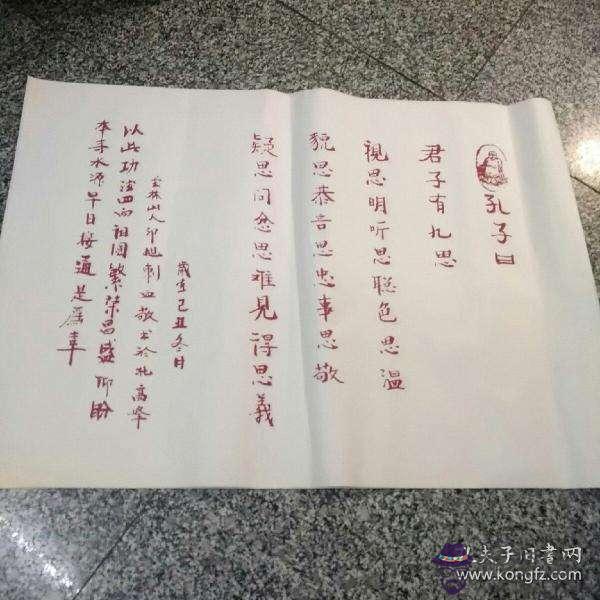 孔子曰
君子有九思
視思明听思聪色思温
貌思恭言思忠事思敬
疑思问忿思难見得思義
歲在己丑冬日
雲林山人印旭刺血敬书於九高峰
以此功法回向祖国繁荣昌盛 仰盼
本寺水源早日接通是為幸
孔夫子旧書网
www.kongfz.com